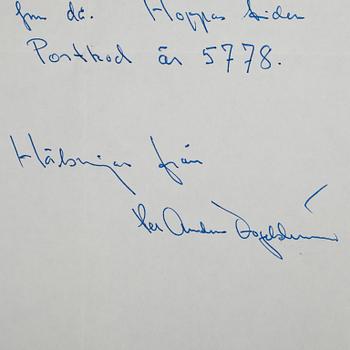 då. Hoppas
Postkod är 5778.
Hälsningar från
Per Anders Fogelström